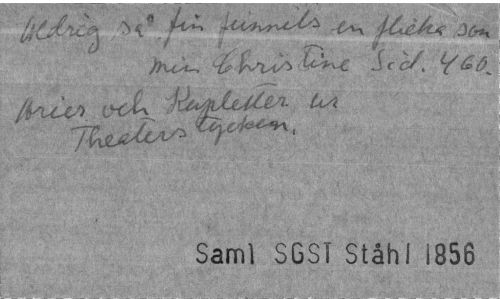 Aldrig så fin funnits en flicka som
min Christine Sid. 460.
Aries och Kupletter ur
Theaterstycken.
Saml SGST Ståhl 1856